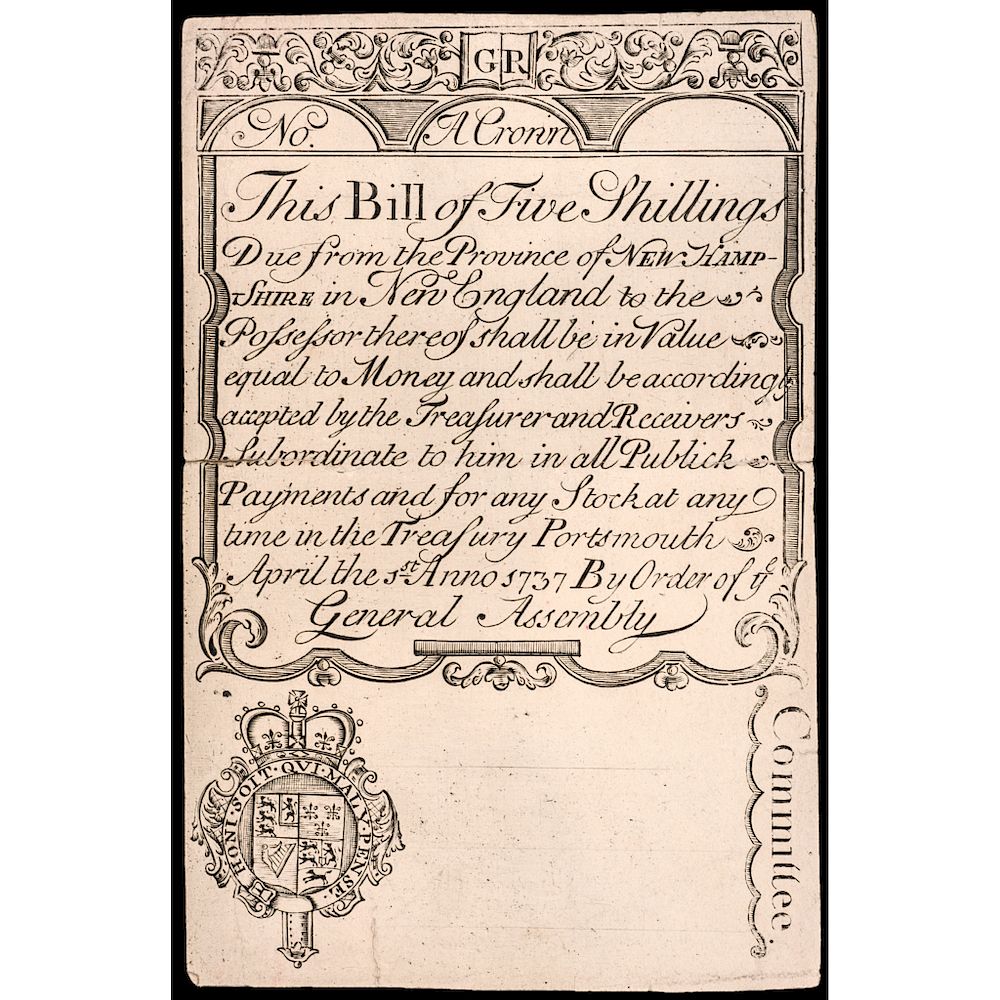 GR
No. A Crown
This Bill of Five Shillings
Due from the Province of NEW HAMP-
SHIRE in New England to the
Poſseſsor thereof shall be in Value
equal to Money and shall be accordingly
accepted by the Treaſurer and Receivers
Subordinate to him in all Publick
Payments and for any Stock at any
time in the Treaſury Portsmouth
April the 1st Anno 1737 By Order of yͤ
General Assembly
HONI·SOIT·QVI·MALY·PENSE·
5.S.
Committee.